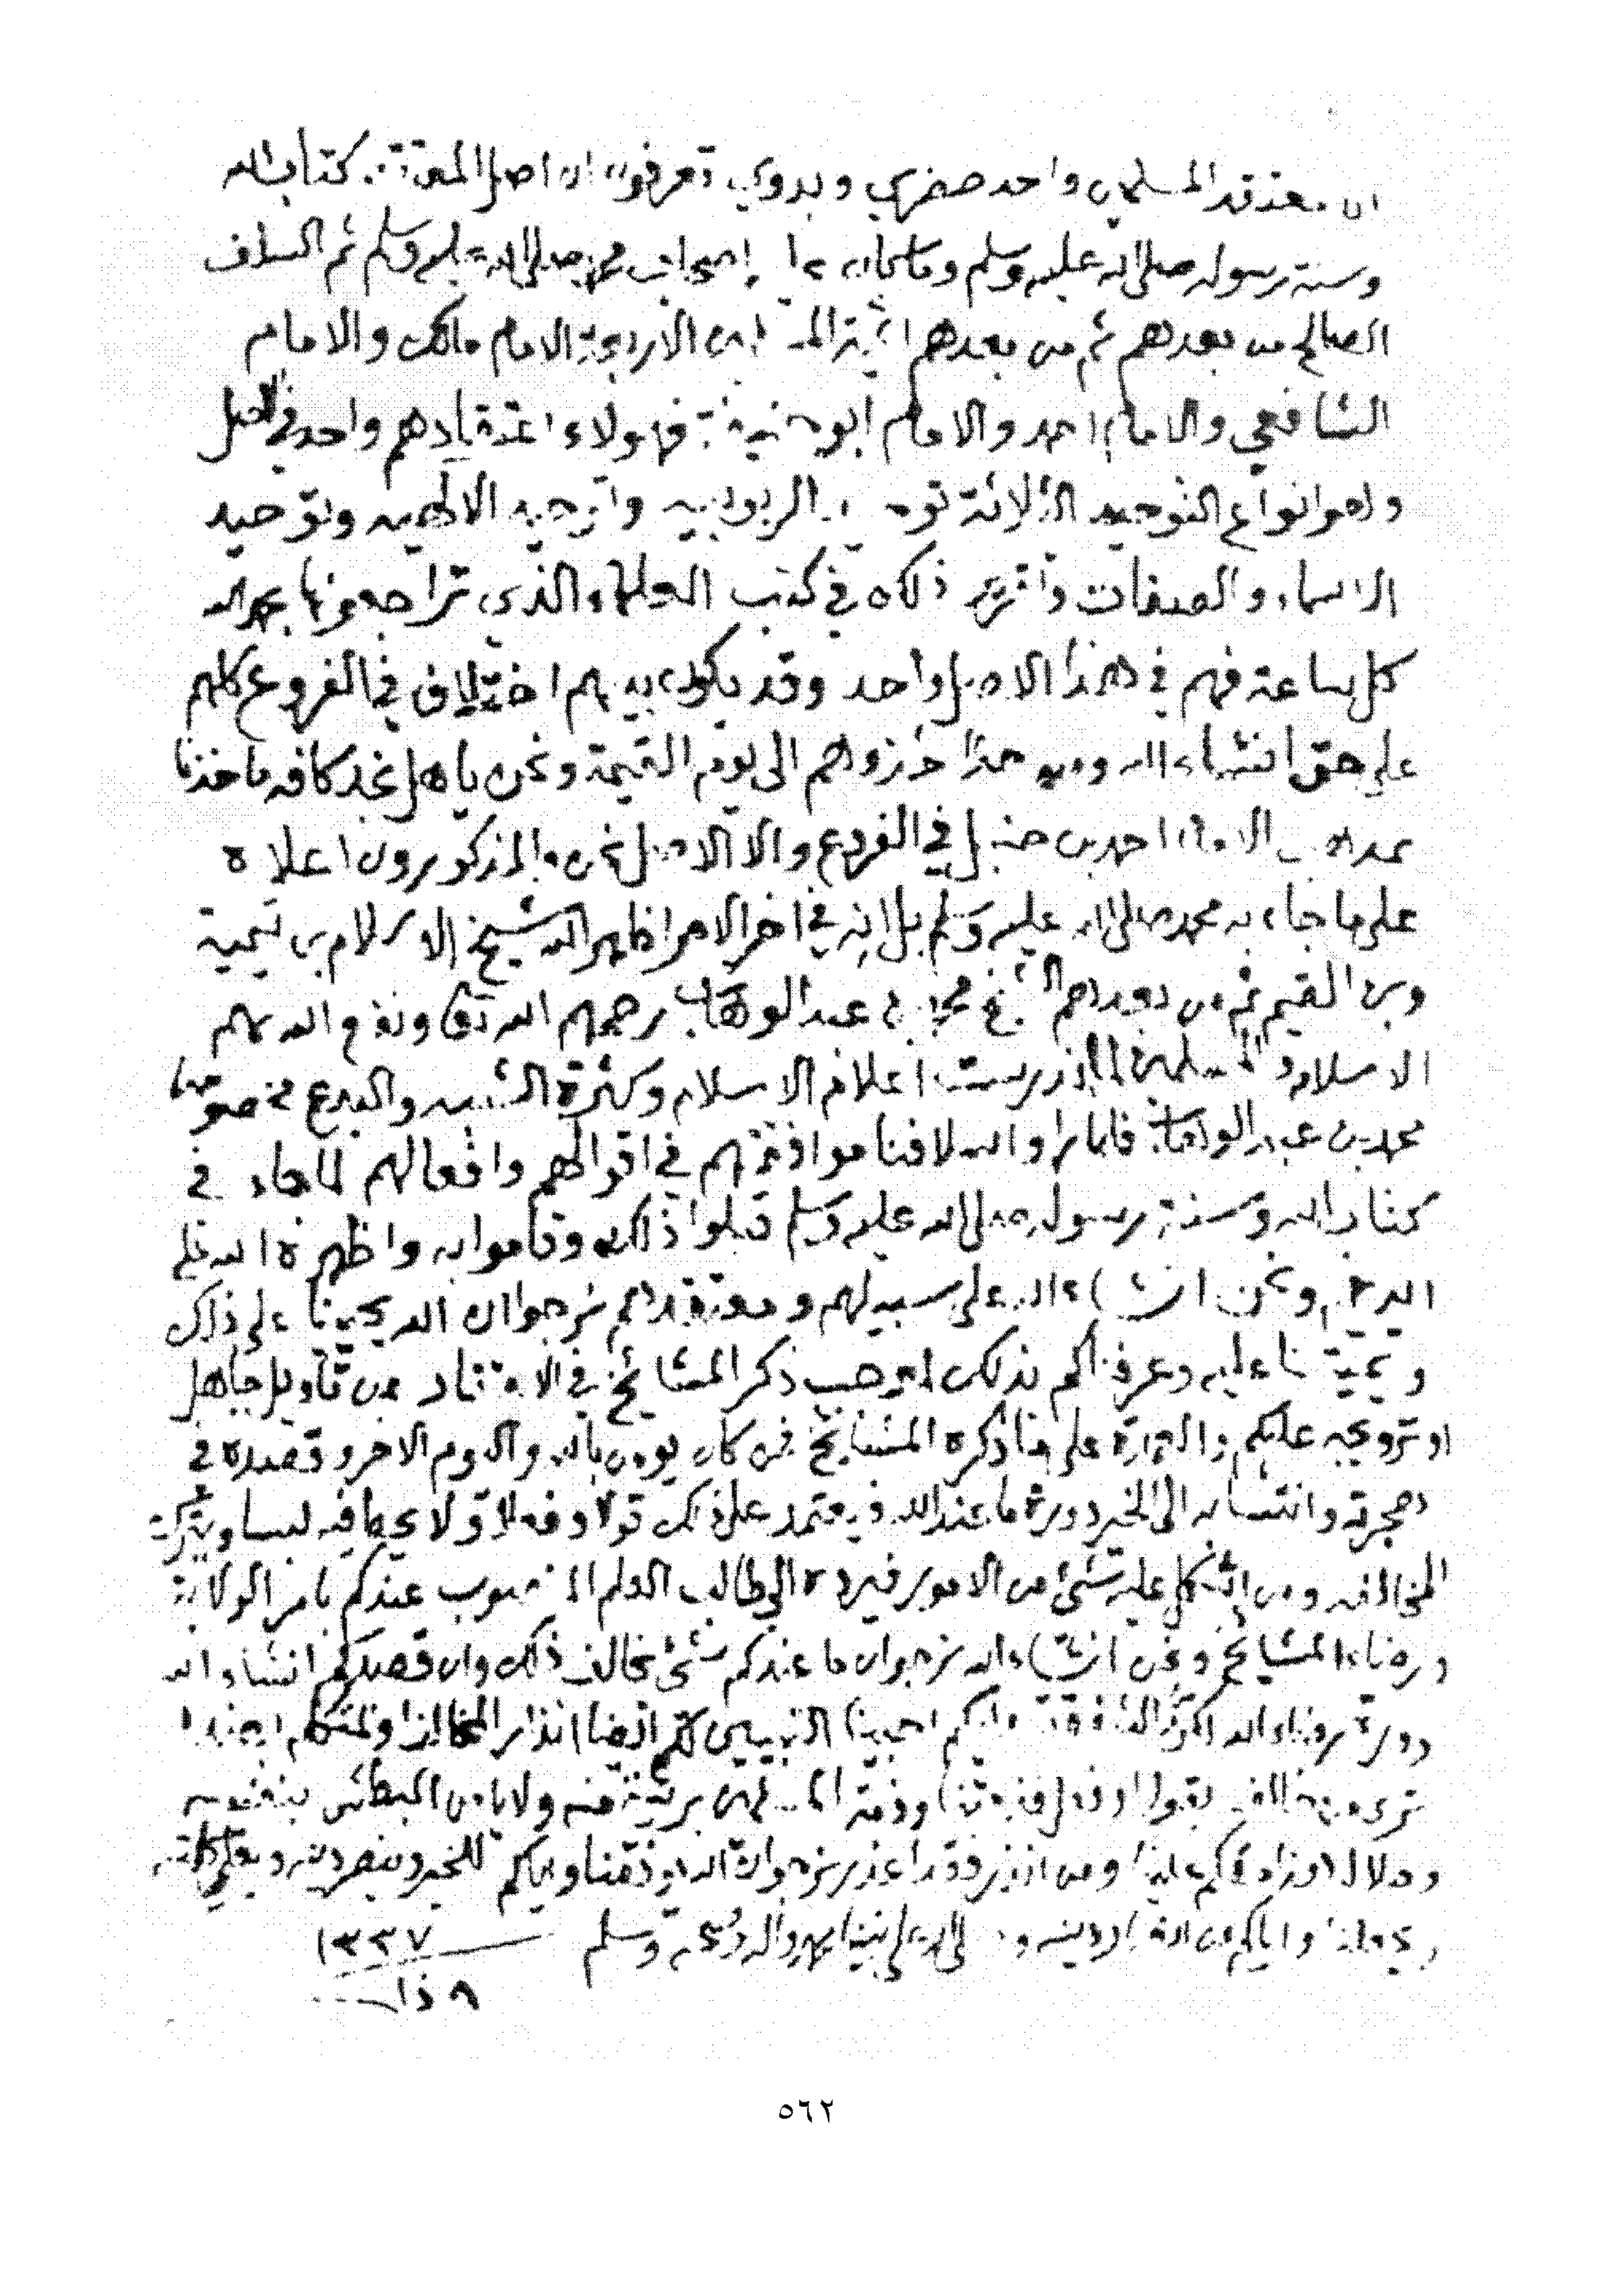 ان معتقد المسلمين واحد حضري وبدوي تعرفون ان اصل المعتقد كتاب الله
وسنة رسوله صلى الله عليه وسلم وما كان عليه اصحاب محمد صلى الله عليه وسلم ثم السلف
الصالح من بعدهم ثم من بعدهم ائمة المسلمين الاربعة الامام مالك والامام
الشافعي والامام احمد والامام ابو حنيفة فهولاء اعتقادهم واحد في الاصل
وهو انواع التوحيد الثلاثة توحيد الربوبيه وتوحيد الالهيه وتوحيد
الاسماء والصفات وتقرير ذلك في كتب العلماء والذي تراجعونها بحمد الله
كل ساعة فهم في هذا الاصل واحد وقد يكون بينهم اختلاف في الفروع كلهم
على حق انشاء الله ومن حذا حذوهم الى يوم القيمة ونحن يا اهل نجد كافه ماخذنا
بمذهب الامام احمد بن حنبل في الفروع والا الاصل نحن والمذكورون اعلاه
على ما جاء به محمد صلى الله عليه وسلم بل انه في اخر الامر اظهر الله شيخ الاسلام بن تيمية
وبن القيم ثم من بعدهم الشيخ محمد بن عبد الوهاب رحمهم الله تعالى ونفع الله بهم
الاسلام والمسلمين اندرست اعلام الاسلام وكثرة الشبه والبدع خصوصا
محمد بن عبد الوهاب فلما راو الله لافنا موافقتهم في اقوالهم وافعالهم لما جاء في
كتاب الله وسنة رسوله صلى الله عليه وسلم قبلوا ذلك وقاموا به واظهره الله على
ايديهم ونحن ان شاء الله على سبيلهم ومعتقدهم نرجوا ان الله يحيينا على ذلك
ويميتنا عليه وعرفناكم بذلك لموجب ذكر المشائخ في الا من تأويل جاهل
او ترويجه عليكم والعمدة على ما ذكره المشايخ فمن كان يومن بالله واليوم الاخر وقصده في
هجرته وانتسابه الى الخير دورة ما عند الله فيعتمد على ذلك قولا وفعلا ولا يحط فيه لسا ويترك
المخالفه ومن اشكل عليه شئ من الامور فيرده الى طالب العلم المنصوب عندكم بامر الولاية
ورضاء المشايخ ونحن ان شاء الله نرجوا ان ما عندكم شئ يخالف ذلك وان قصدكم انشاء الله
دورة رضاء الله الشفقة عليكم احببنا التبيين لكم ايضا انذار المخالف
نرى مخالف بقول او فعل وذمة المسلمين بريئة منه ولا يامن البطش بنفسه
وحلاله ومن انذر فقد اعذر نرجوا ان الله يوفقنا وياكم للخير وينصر دينه ويعلي كلمته
ويجعلنا واياكم من انصار دينه وصلى الله على نبينا محمد واله وصحبه وسلم ١٣٣٧
٩ ذا
٥٦٢